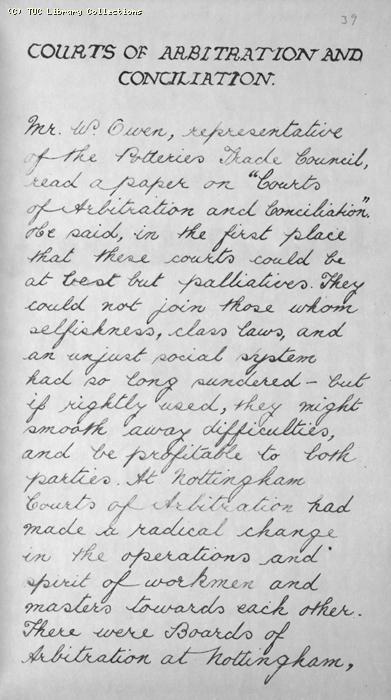 (C) TUC Library Collections
39
COURTS OF ARBITRATION AND
CONCILIATION.
Mr. W. Owen, representative
of the Potteries Trade Council,
read a paper on "Courts
of Arbitration and Conciliation".
He said, in the first place
that these courts could be
at best but palliatives. They
could not join those whom
selfishness, class laws, and
an unjust social system
had so long sundered - but
if rightly used, they might
smooth away difficulties,
and be profitable to both
parties. At Nottingham
Courts of Arbitration had
made a radical change
in the operations and
spirit of workmen and
masters towards each other.
There were Boards of
Arbitration at Nottingham,